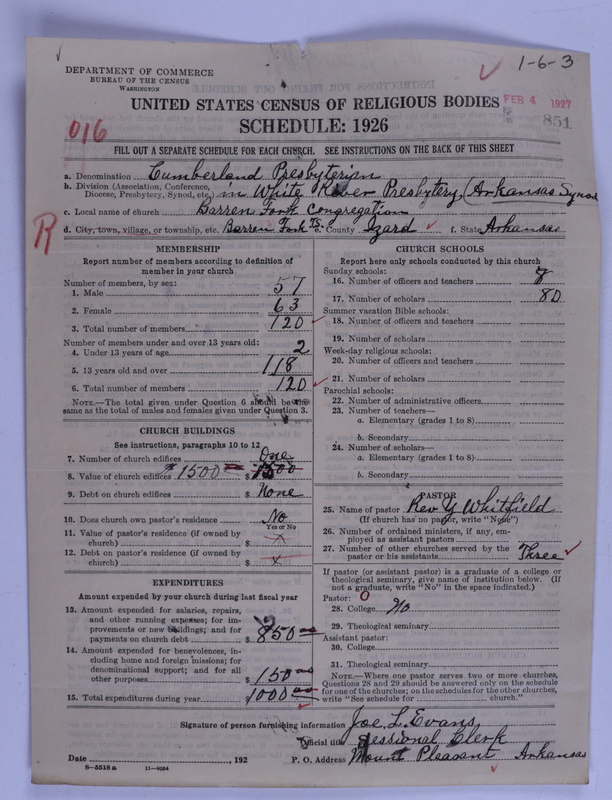 1-6-3
DEPARTMENT OF COMMERCE
BUREAU OF THE CENSUS
WASHINGTON
UNITED STATES CENSUS OF RELIGIOUS BODIES
FEB 4 1927
851
016
SCHEDULE: 1926
FILL OUT A SEPARATE SCHEDULE FOR EACH CHURCH. SEE INSTRUCTIONS ON THE BACK OF THIS SHEET
a. Denomination Cumberland Presbyterian
b. Division (Association, Conference, Diocese, Presbytery, Synod, etc.) in White River Presbytery, (Arkansas Synod
c. Local name of church Barren Fork Congregation
R
d. City, town, village, or township, etc. Barren Fork Ts. e. County Izard f. State Arkansas
MEMBERSHIP
Report number of members according to definition of member in your church
Number of members, by sex:
1. Male 57
2. Female 63
3. Total number of members 120
Number of members under and over 13 years old:
4. Under 13 years of age 2
5. 13 years old and over 118
6. Total number of members 120
NOTE.—The total given under Question 6 should be the same as the total of males and females given under Question 3.
CHURCH BUILDINGS
See instructions, paragraphs 10 to 12
7. Number of church edifices One
8. Value of church edifices $1500 $ 1500
9. Debt on church edifices $ None
10. Does church own pastor's residence No
Yes or No
11. Value of pastor's residence (if owned by church) $ x
12. Debt on pastor's residence (if owned by church) $ x
EXPENDITURES
Amount expended by your church during last fiscal year
13. Amount expended for salaries, repairs, and other running expenses; for improvements or new buildings; and for payments on church debt $ 850
14. Amount expended for benevolences, including home and foreign missions; for denominational support; and for all other purposes $ 150 00
15. Total expenditures during year $ 1000 00
CHURCH SCHOOLS
Report here only schools conducted by this church
Sunday schools:
16. Number of officers and teachers 8
17. Number of scholars 80
Summer vacation Bible schools:
18. Number of officers and teachers
19. Number of scholars
Week-day religious schools:
20. Number of officers and teachers
21. Number of scholars
Parochial schools:
22. Number of administrative officers
23. Number of teachers—
a. Elementary (grades 1 to 8)
b. Secondary
24. Number of scholars—
a. Elementary (grades 1 to 8)
b. Secondary
PASTOR
25. Name of pastor Rev Y Whitfield
(If church has no pastor, write "None")
26. Number of ordained ministers, if any, employed as assistant pastors
27. Number of other churches served by the pastor or his assistants Three
If pastor (or assistant pastor) is a graduate of a college or theological seminary, give name of institution below. (If not a graduate, write "No" in the space indicated.)
Pastor: 0
28. College No
29. Theological seminary
Assistant pastor:
30. College
31. Theological seminary
NOTE.—Where one pastor serves two or more churches, Questions 28 and 29 should be answered only on the schedule for one of the churches; on the schedules for the other churches, write "See schedule for church."
Signature of person furnishing information Joe L. Evans
Official title Sessional Clerk
Date , 192 P. O. Address Mount Pleasant Arkansas
8-5518a 11-9034